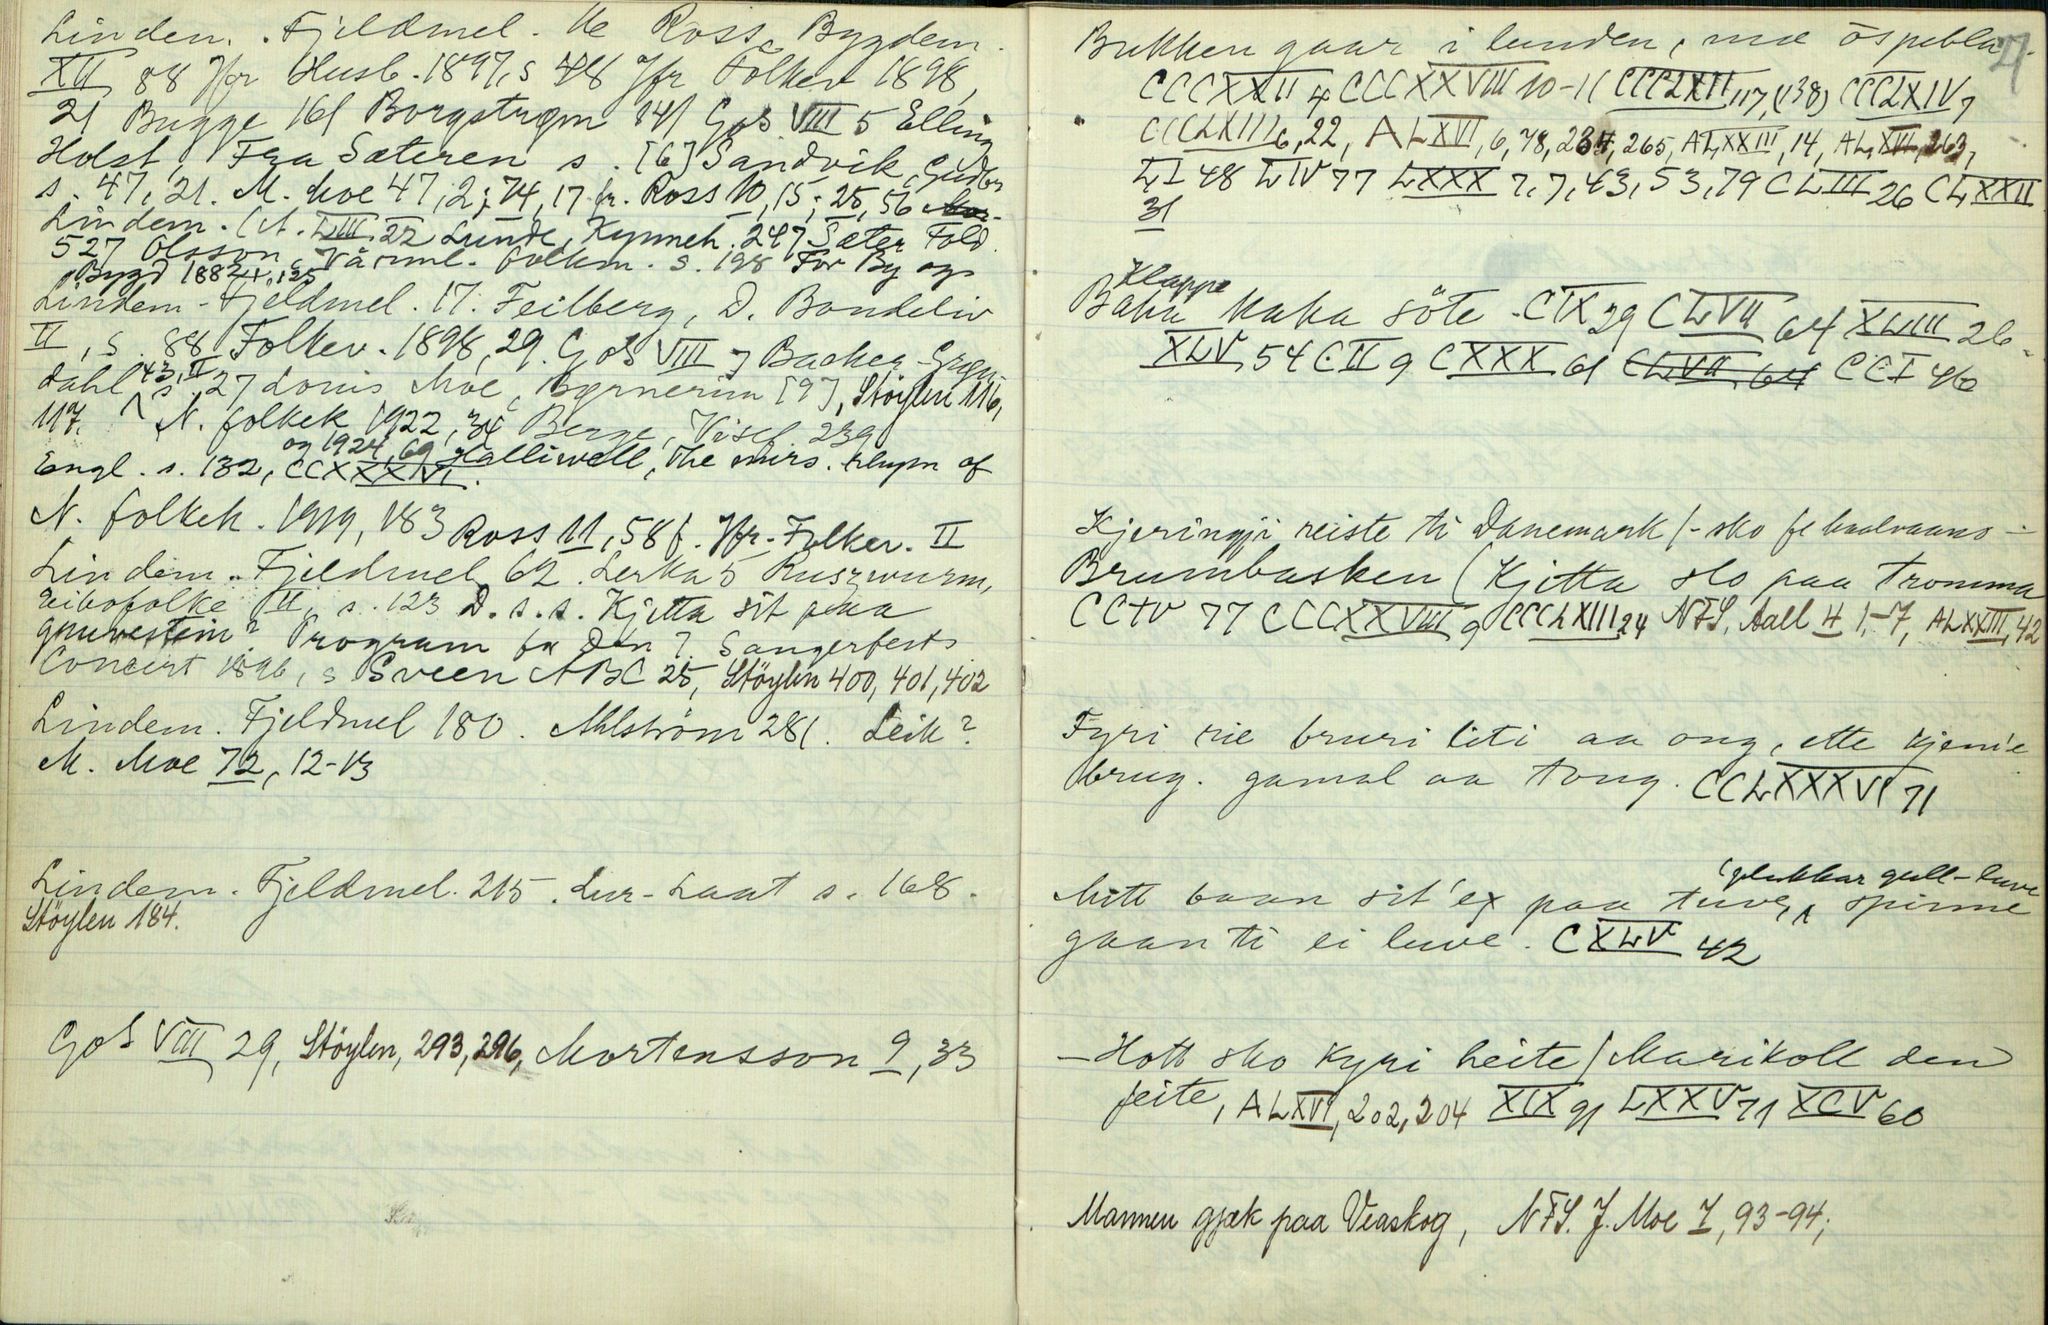 Lindem. Fjeldmel. 4e Ross, Bygdem.
XII 88 Jfr Husb. 1897, s 48 Jfr Folkev 1898,
21 Bugge 161 Borgström 141 GoS VIII 5 Elling
Holst, Fra Sæteren s. [6] Sandvik, Gudbr
s. 47, 21. M. Moe 47, 2; 74, 17 fr. Ross 10, 15; 25, 56
Lindem. LIII 22 Lunde, Kynneh. 247 Sæter Fold.
527 Olsson, Värml. folkm. s. 198 For By og
Bygd 1882, 125
Lindem. Fjeldmel. 17. Feilberg, D. Bondeliv
II, s. 88 Folkev. 1898, 29. GoS VIII 7 Backer-Grøn-
dahl 43, II s. 27 Louis Moe, Byrnerim [9], Støylen 116,
117. N. folkek 1922, 34 Berge, Viseb. 239
og 1924, 69 Halliwell, The nurs. rhym of
Engl. s. 132, CCXXXVI.
N. folkek. 1919, 183 Ross 11, 58 f. Jfr. Folkev. II
Lindem. Fjeldmel. 62. Lerka 5 Ruszwurm,
Eibofolke II, s. 123 D. s. s. Kjetta sit paa
gruvestein? Program for Den 7. Sangerfests
Concert 1896, s Sveen ABC 25, Støylen 400, 401, 402
Lindem. Fjeldmel 180. Ahlström 281. Leik?
M. Moe 72, 12-13
Lindem. Fjeldmel. 215. Lur-Laat s. 168.
Støylen 184.
GoS VIII 29, Støylen, 293, 296, Mortensson 9, 33
Bukken gaar i lunden, mæ öspebla
CCCXXII 4 CCCXXVIII 10-11 CCCLXII, 117, (138) CCCLXIV 7
CCCLXIII 6, 22, ALXVI, 6, 78, 234, 265, ALXXIII, 14, ALXVII, 263,
LI 48 LIV 77 LXXX 7, 7, 43, 53, 79 CLIII 26 CLXXII
31
Klappe
Baka kaka söte - CIX 29 CLVII 64 XLIII 26
XLV 54 CII 9 CXXX 61 CLVII 64 CCI 46
Kjeringji reiste ti Danemark /- sko fe
Brumbasken (Kjetta slo paa tromma
CCIV 77 CCCXXVIII 9 CCCLXIII 24 NFS. Aall II 1-7, ALXXIII, 42
Fyri rie bruri liti aa ong, ette kjem'e
brug. gamal aa tong. CCLXXXVI 71
(plukkar gull-luve
Mitt baan sit'ex paa tuve, spinne
gaan ti ei luve. CXLV 42
– Hott sko kyri heite / Marikoll den
feite, ALXVI, 202, 204 XIX 91 LXXV 71 XCV 60
Mannen gjæk paa Veaskog, NFS. J. Moe I, 93-94;